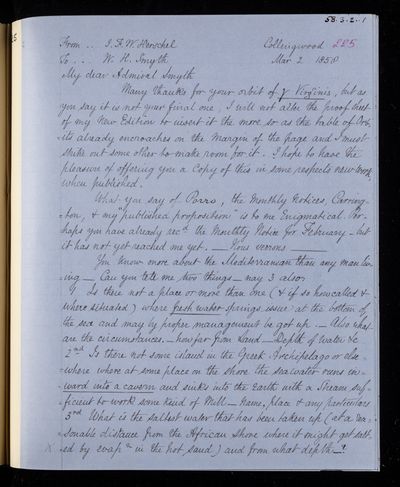 58.3.2.1
From .. J. F. W. Herschel Collingwood 225
To .. . W. H. Smyth Mar 2 1858
My dear Admiral Smyth
Many thanks for your orbit of γ Virginis, but as
you say it is not your final one, I will not alter the proof sheet
of my New Edition to insert it the more so as the table of Orb-
its already encroaches on the margin of the page and I must
strike out some other to make room for it. I hope to have the
pleasure of offering you a Copy of this in some respects new work,
when published.
What you say of Porro, the Monthly Notices, Carring-
ton, & my "published proposition" is to me Enigmatical. Per-
haps you have already recd the Monthly Notice for February - but
it has not yet reached me yet. — Nous verrons —
You know more about the Mediterranean than any man liv-
ing — Can you tell me two things — nay 3 also
1 Is there not a place or more than one (& if so how called &
where situated) where fresh water springs issue at the bottom of
the sea and may by proper management be got up. — Also what
are the circumstances. - how far from Land — Depth of water &c
2nd Is there not some island in the Greek Archipelago or else-
where where at some place on the shore the seawater runs in-
ward into a cavern and sinks into the Earth with a Stream suf-
ficient to work some kind of Mill — name, place & any particulars
3rd What is the saltest water that has been taken up (at a rea-
sonable distance from the African Shore where it might get salt-
ed by evapn in the hot sand) and from what depth. — ?